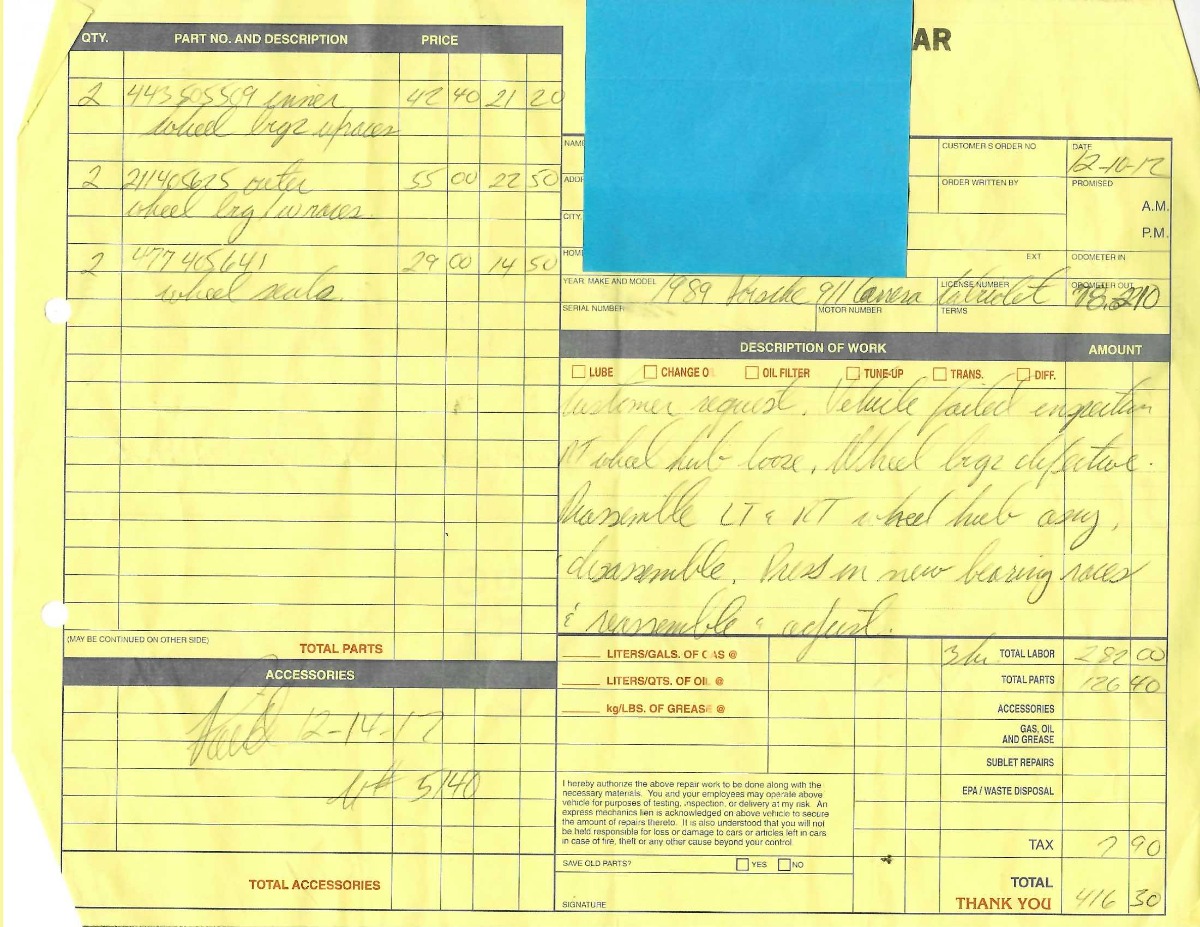 AR
QTY. PART NO. AND DESCRIPTION PRICE
2 443505509 inner 42 40 21 20
wheel brgs w/races
2 211405625 outer 55 00 22 50
wheel brg/w races.
2 477 405641 29 00 14 50
wheel seals.
(MAY BE CONTINUED ON OTHER SIDE)
TOTAL PARTS
ACCESSORIES
Paid 12-14-17
# 5140
TOTAL ACCESSORIES
CUSTOMER'S ORDER NO DATE
12-10-17
ORDER WRITTEN BY PROMISED
A.M.
P.M.
CITY,
EXT ODOMETER IN
YEAR, MAKE AND MODEL LICENSE NUMBER ODOMETER OUT
1989 Porsche 911 Carrera Cabriolet
SERIAL NUMBER MOTOR NUMBER TERMS
DESCRIPTION OF WORK AMOUNT
LUBE CHANGE O OIL FILTER TUNE-UP TRANS. DIFF.
Customer request. Vehicle failed inspection
RT wheel hub loose. Wheel brgs defective.
LT & RT wheel hub assy,
disassemble. Press in new bearing races
& reassemble & adjust.
LITERS/GALS. OF GAS @ 3hr TOTAL LABOR 282 00
LITERS/QTS. OF OIL @ TOTAL PARTS 126 40
kg/LBS. OF GREASE @ ACCESSORIES
GAS, OIL
AND GREASE
SUBLET REPAIRS
EPA / WASTE DISPOSAL
I hereby authorize the above repair work to be done along with the
necessary materials. You and your employees may operate above
vehicle for purposes of testing, inspection, or delivery at my risk. An
express mechanics lien is acknowledged on above vehicle to secure
the amount of repairs thereto. It is also understood that you will not
be held responsible for loss or damage to cars or articles left in cars
in case of fire, theft or any other cause beyond your control.
TAX 7 90
SAVE OLD PARTS? YES NO
TOTAL 416 30
THANK YOU
SIGNATURE